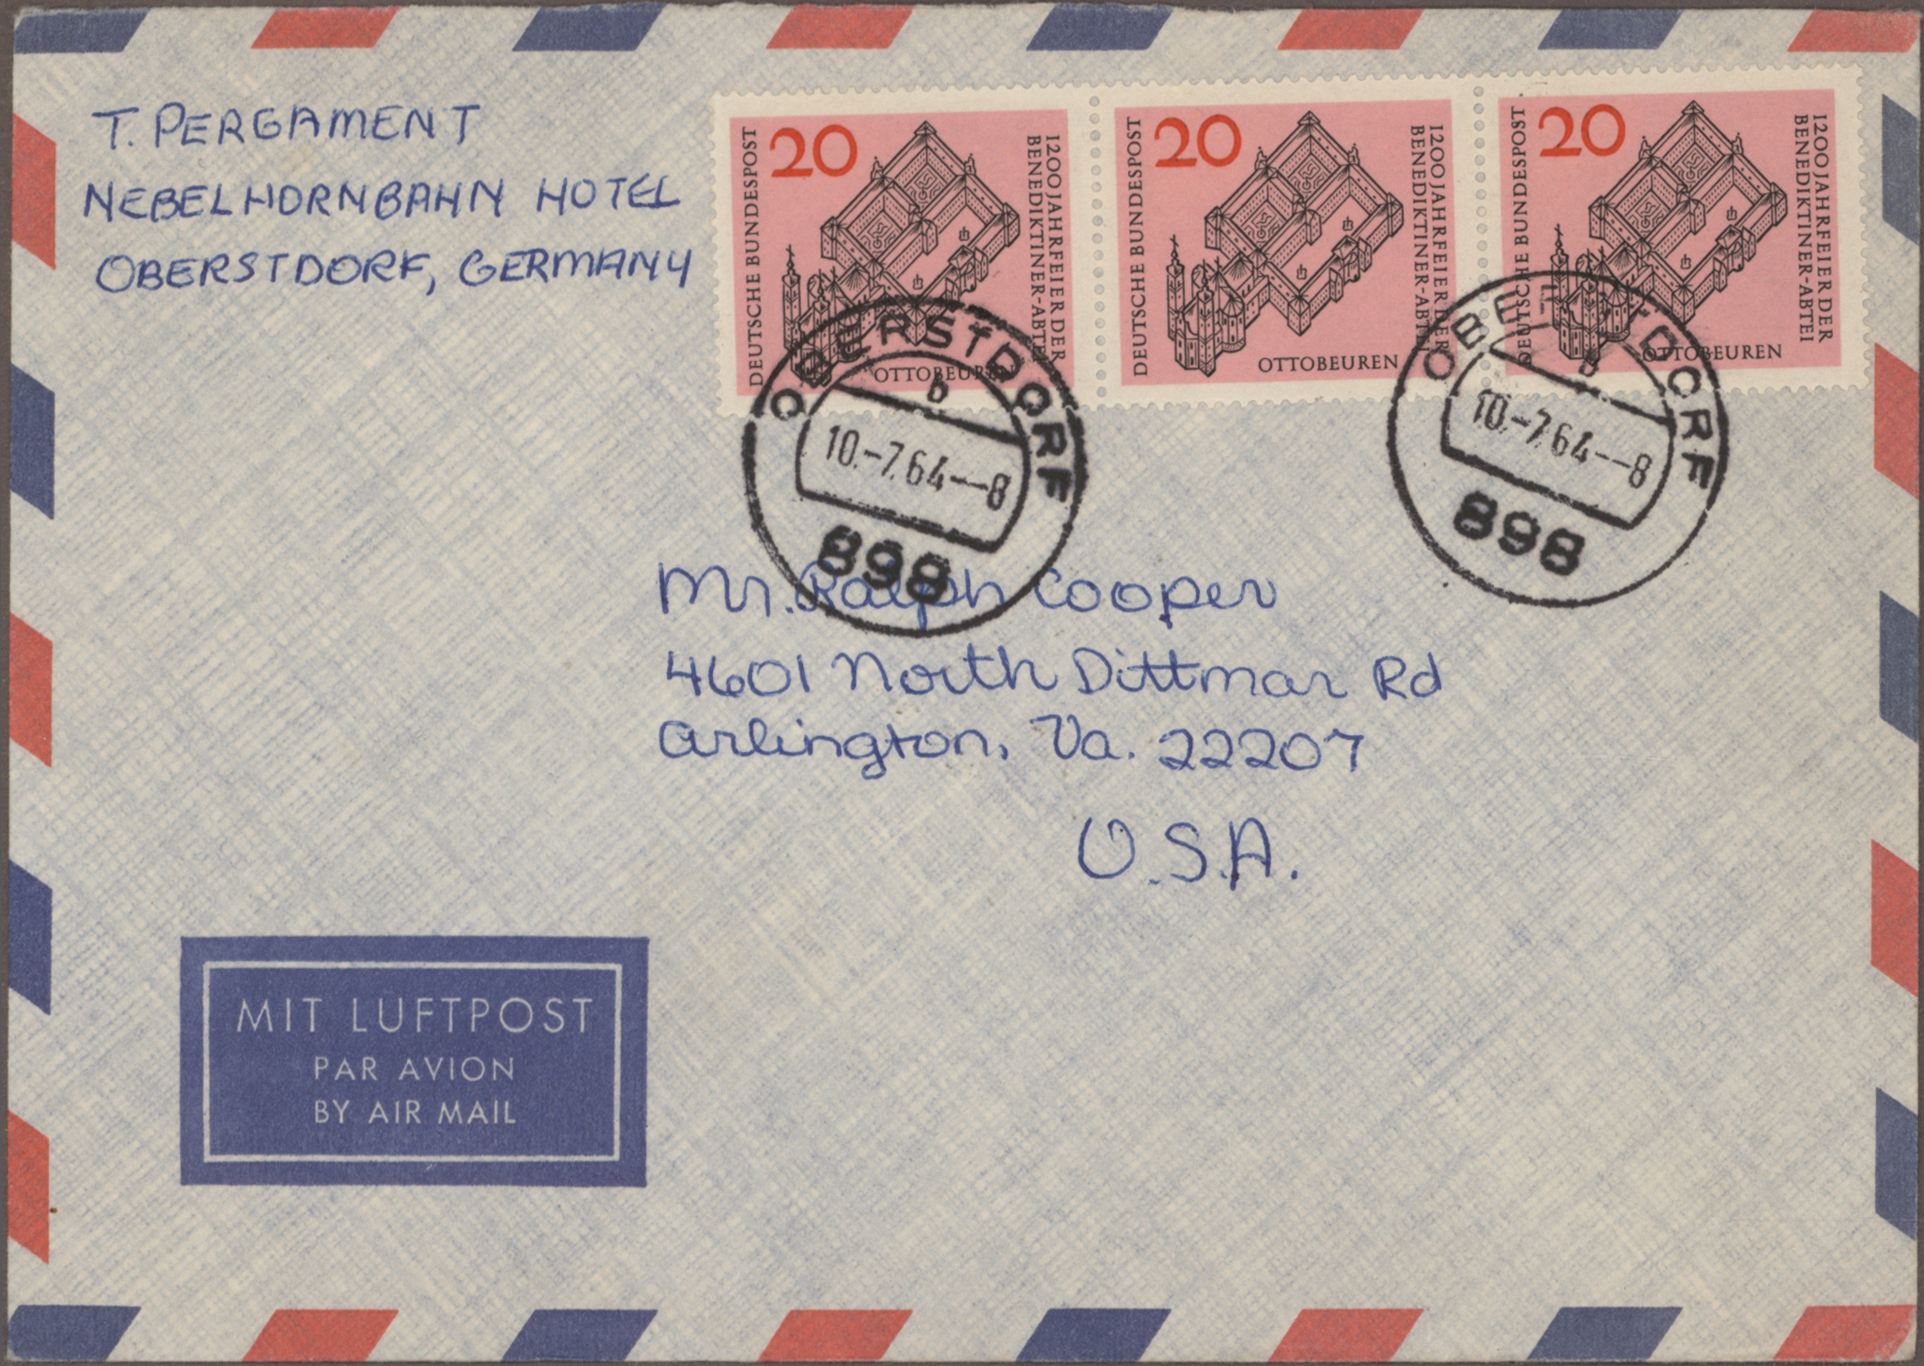 T. PERGAMENT
NEBELHORNBAHN HOTEL
OBERSTDORF, GERMANY
DEUTSCHE BUNDESPOST
20
1200 JAHRFEIER DER
BENEDIKTINER-ABTEI
OTTOBEUREN
DEUTSCHE BUNDESPOST
20
1200 JAHRFEIER DER
BENEDIKTINER-ABTEI
OTTOBEUREN
DEUTSCHE BUNDESPOST
20
1200 JAHRFEIER DER
BENEDIKTINER-ABTEI
OTTOBEUREN
OBERSTDORF
b
10.-7.64--8
898
OBERSTDORF
b
10.-7.64--8
898
Mr. Ralph Cooper
4601 North Dittmar Rd
Arlington, Va. 22207
U.S.A.
MIT LUFTPOST
PAR AVION
BY AIR MAIL